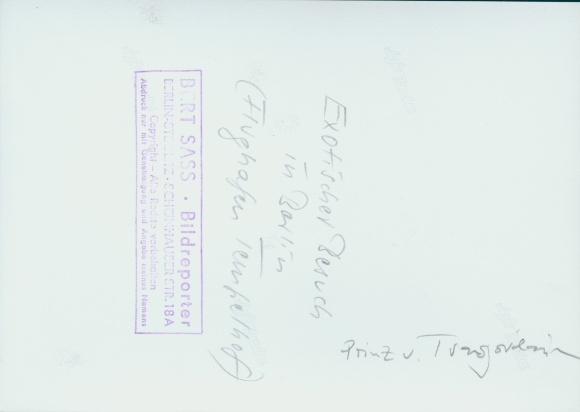 Exotischer Besuch
in Berlin
(Flughafen Tempelhof)
BERT SASS · Bildreporter
BERLIN-STEGLITZ · SCHÖNHAUSER STR. 18A
Copyright - Alle Rechte vorbehalten
Abdruck nur mit Genehmigung und Angabe meines Namens
Prinz v.